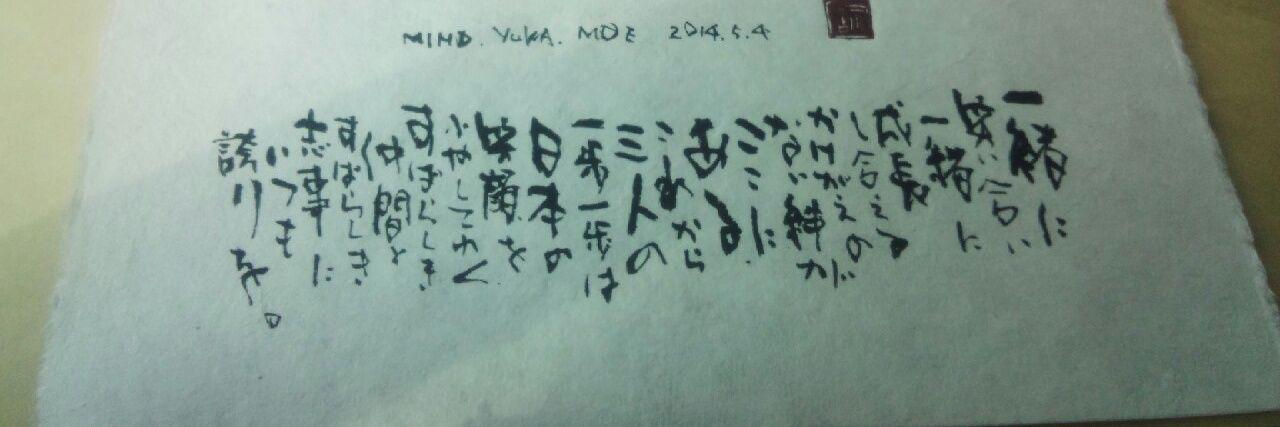 MIND. YUKA. MOE 2014.5.4
一緒に
笑い合い
一緒に
成長
し合える
かけがえの
ない絆が
ここに
ある
これから
三人の
一歩一歩は
日本の
笑顔を
ふやしてゆく
すばらしき
仲間と
すばらしき
志事に
いつも
誇りを。